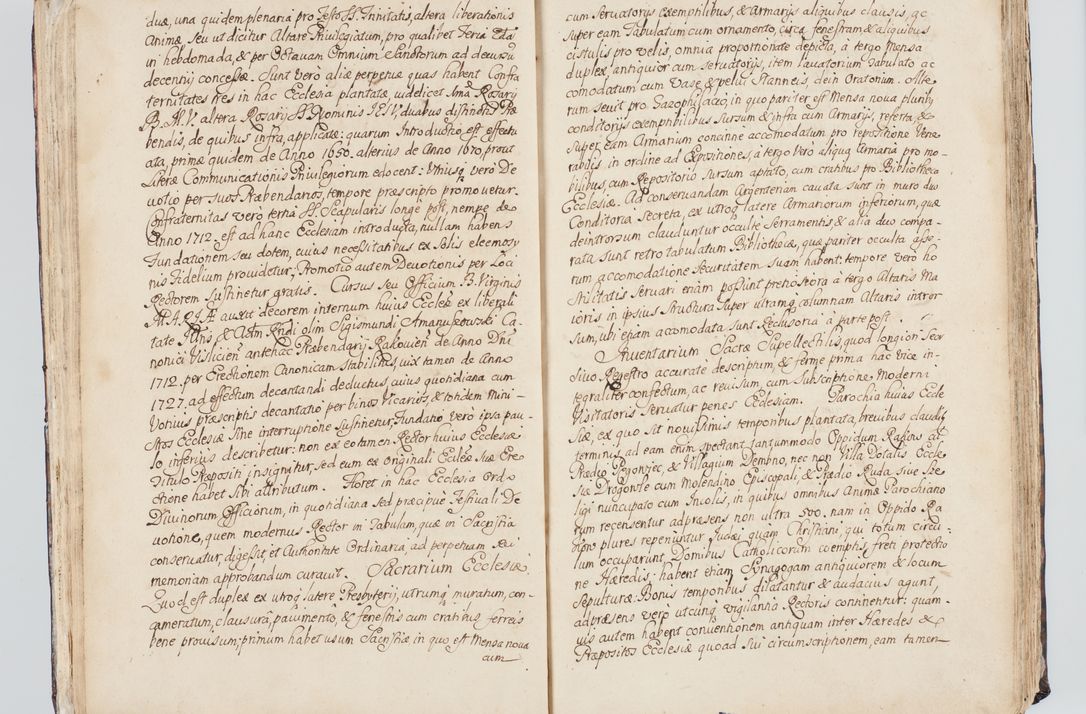 duæ, una quidem plenaria pro Festo SS. Trinitatis, altera liberationis
Animæ seu ut dicitur Altare Privilegiatum, pro qualibet Feria 2da
in hebdomada, & per Octavam Omnium Sanctorum ad decursũ
decennij concessæ. Sunt vero aliæ perpetuæ quas habent Confra
ternitates tres in hac Ecclesia plantatæ, videlicet Smæ Rosarij
B.M.V. altera Rosarij SS. Nominis IESV, duabus distinctis Præ
bendis, de quibus infra, applicatæ: quarum Introductio est effectu
ata, primæ quidem de Anno 1650. alterius de Anno 1670, prout
Literæ Communicationis Privilegiorum edocent: Utriusq vero De
votio per suos Præbendarios, tempore præscripto promovetur.
Confraternitas vero tertia SS. Scapularis longe post, nempe de
Anno 1712. est ad hanc Ecclesiam introducta, nullam habens
Fundationem seu dotem, cuius necessitatibus ex solis eleemosy
nis Fidelium providetur, Promotio autem Devotionis per Loci
Rectorem sustinetur gratis. Cursus seu Officium B. Virginis
MARIÆ auxit decorem internum huius Ecclæ ex liberali
tate Illris & Adm Rndi olim Sigismundi Ca
nonici Vislicien antehac Præbendarij Rakovien de Anno Dni
1712. per Erectionem Canonicam stabilitus, vix tamen de Anno
1727. ad effectum decantandi deductus, cuius quotidiana cum
Vonius præscriptis decantatio per binos Vicarios, & totidem Mini-
stros Ecclesiæ sine interruptione sustinetur, Fundatio vero ipsa pau-
lo inferius describetur: non ex eo tamen Rector huius Ecclesiæ
Titulo Præpositi insignitur, sed eum ex originali Ecclæ suæ Ere
ctione habet sibi attributum. Floret in hac Ecclesia Ordo
Divinorum Officiorum, in quotidiana sed præcipue Festivali De
votione, quem modernus Rector in Tabulam, quæ in Sacristia
conservatur, digessit, et Authoritate Ordinaria, ad perpetuam Rei
memoriam approbandum curavit. Sacrarium Ecclesiæ
Quod est duplex ex utroq latere Presbyterij, utrumq muratum, con-
cameratum, clausurâ, pavimento, & fenestris cum cratibus ferreis
bene provisum; primum habet usum Sacristiæ in quo est Mensa nova
cum
cum servatorijs exemptilibus, & Armarijs aliquibus clausis, ac
super eam Tabulatum cum ornamento, circa fenestram & aliquibus
cistulis pro velis, omnia proportionate depicta, à tergo Mensa
duplex antiquior cum servatorijs, item lavatorium tabulato ac
comodatum cum Vase & pelui stanneis, dein Oratorium. Alte
rum sevit pro Gazophilacio, in quo pariter est Mensa nova pluribq
conditorijs exemptibilibus sursum & infra cum Armarijs, referta, &
super eam Armarium concinne accomodatum pro repositione Vene
rabilis in ordine ad Expositiones, à tergo vero aliqua Armaria pro mo-
bilibus, cum Repositorio sursum aptato, cum cratibus pro Bibliotheca
Ecclesiæ. Ad conservandam Argenteriam cavata sunt in muro duo
Conditoria secreta, ex utroq latere Armariorum inferiorum, quæ
deintrorsum clauduntur occulte serramentis, & alia duo compa-
rata sunt retro tabulatum Bibliothecæ, quæ pariter occulta asse-
rum accomodatione securitatem suam habent: tempore vero ho
stilitatis servari etiam possint pretiosiora à tergo Altaris Ma
ioris in ipsius structura super utramq columnam Altaris intror
sum, ubi etiam accomodata sunt Reclusoria à parte post.
Inventarium Sacræ Supellectilis, quod longiori Seor
sivo Regestro accurate descriptum, & ferme prima hac vice in-
tegraliter confectum, ac revisum, cum subscriptione Moderni
Visitatoris servatur penes Ecclesiam. Parochia huius Eccle
siæ, ex quo sit novissimis temporibus plantata, brevibus claudit
terminis, ad eam enim spectant tantummodo Oppidum Rakow cũ
Prædio & Villagium Dembno, nec non Villa Dotalis Eccle
siæ Drogowle cum Molendino Episcopali, & Prædio Ruda sive Sze
ligi nuncupato cum Incolis, in quibus omnibus Animæ Parochiano
rum recensentur ad præsens non ultra 500. nam in Oppido Ra
kow plures reperiuntur Judæi quam Christiani, qui totum circu-
lum occuparunt Domibus Catholicorum coemptis, freti protectio
ne Hæredis: habent etiam Synagogam antiquiorem & locum
Sepulturæ: Bonis temporibus dilatantur & audacius agunt,
ad præsens vero utcunq vigilantia Rectoris continentur: quam-
vis autem habent conventionem antiquam inter Hæredes &
Præpositos Ecclesiæ quoad sui circumscriptionem, eam tamen